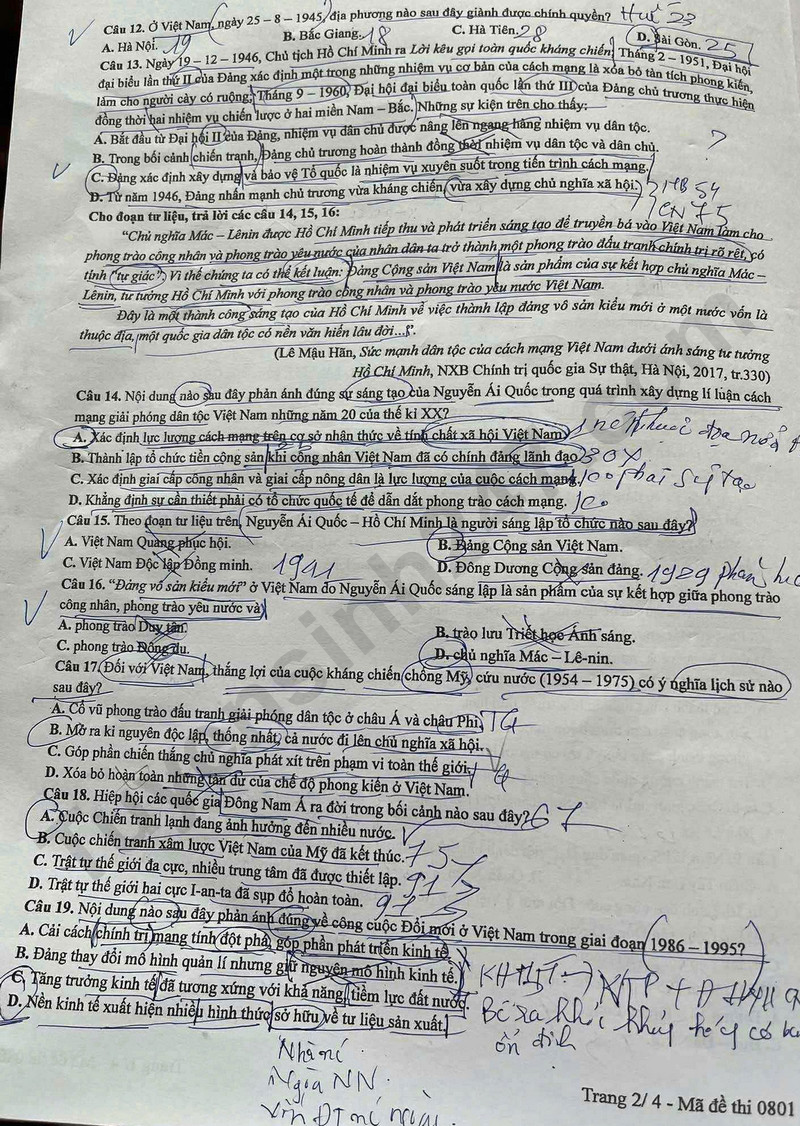 Câu 12. Ở Việt Nam, ngày 25 – 8 – 1945, địa phương nào sau đây giành được chính quyền? Huế 23
A. Hà Nội. 19 B. Bắc Giang. 18 C. Hà Tiên. 28 D. Sài Gòn. 25
Câu 13. Ngày 19 – 12 – 1946, Chủ tịch Hồ Chí Minh ra Lời kêu gọi toàn quốc kháng chiến; Tháng 2 – 1951, Đại hội
đại biểu lần thứ II của Đảng xác định một trong những nhiệm vụ cơ bản của cách mạng là xóa bỏ tàn tích phong kiến,
làm cho người cày có ruộng; Tháng 9 – 1960, Đại hội đại biểu toàn quốc lần thứ III của Đảng chủ trương thực hiện
đồng thời hai nhiệm vụ chiến lược ở hai miền Nam – Bắc. Những sự kiện trên cho thấy:
A. Bắt đầu từ Đại hội II của Đảng, nhiệm vụ dân chủ được nâng lên ngang hàng nhiệm vụ dân tộc.
B. Trong bối cảnh chiến tranh, Đảng chủ trương hoàn thành đồng thời nhiệm vụ dân tộc và dân chủ. ?
C. Đảng xác định xây dựng và bảo vệ Tổ quốc là nhiệm vụ xuyên suốt trong tiến trình cách mạng.
D. Từ năm 1946, Đảng nhấn mạnh chủ trương vừa kháng chiến, vừa xây dựng chủ nghĩa xã hội. MB 54
CN 75
Cho đoạn tư liệu, trả lời các câu 14, 15, 16:
“Chủ nghĩa Mác – Lênin được Hồ Chí Minh tiếp thu và phát triển sáng tạo để truyền bá vào Việt Nam làm cho
phong trào công nhân và phong trào yêu nước của nhân dân ta trở thành một phong trào đấu tranh chính trị rõ rệt, có
tính “tự giác”. Vì thế chúng ta có thể kết luận: Đảng Cộng sản Việt Nam là sản phẩm của sự kết hợp chủ nghĩa Mác –
Lênin, tư tưởng Hồ Chí Minh với phong trào công nhân và phong trào yêu nước Việt Nam.
Đây là một thành công sáng tạo của Hồ Chí Minh về việc thành lập đảng vô sản kiểu mới ở một nước vốn là
thuộc địa, một quốc gia dân tộc có nền văn hiến lâu đời...”.
(Lê Mậu Hãn, Sức mạnh dân tộc của cách mạng Việt Nam dưới ánh sáng tư tưởng
Hồ Chí Minh, NXB Chính trị quốc gia Sự thật, Hà Nội, 2017, tr.330)
Câu 14. Nội dung nào sau đây phản ánh đúng sự sáng tạo của Nguyễn Ái Quốc trong quá trình xây dựng lí luận cách
mạng giải phóng dân tộc Việt Nam những năm 20 của thế kỉ XX?
A. Xác định lực lượng cách mạng trên cơ sở nhận thức về tính chất xã hội Việt Nam.
B. Thành lập tổ chức tiền cộng sản khi công nhân Việt Nam đã có chính đảng lãnh đạo.
C. Xác định giai cấp công nhân và giai cấp nông dân là lực lượng của cuộc cách mạng.
D. Khẳng định sự cần thiết phải có tổ chức quốc tế để dẫn dắt phong trào cách mạng.
Câu 15. Theo đoạn tư liệu trên, Nguyễn Ái Quốc – Hồ Chí Minh là người sáng lập tổ chức nào sau đây?
A. Việt Nam Quang phục hội. B. Đảng Cộng sản Việt Nam.
C. Việt Nam Độc lập Đồng minh. 1941 D. Đông Dương Cộng sản đảng. 1929
Câu 16. “Đảng vô sản kiểu mới” ở Việt Nam do Nguyễn Ái Quốc sáng lập là sản phẩm của sự kết hợp giữa phong trào
công nhân, phong trào yêu nước và
A. phong trào Duy tân. B. trào lưu Triết học Ánh sáng.
C. phong trào Đông du. D. chủ nghĩa Mác – Lê-nin.
Câu 17. Đối với Việt Nam, thắng lợi của cuộc kháng chiến chống Mỹ, cứu nước (1954 – 1975) có ý nghĩa lịch sử nào
sau đây?
A. Cổ vũ phong trào đấu tranh giải phóng dân tộc ở châu Á và châu Phi. TG
B. Mở ra kỉ nguyên độc lập, thống nhất, cả nước đi lên chủ nghĩa xã hội.
C. Góp phần chiến thắng chủ nghĩa phát xít trên phạm vi toàn thế giới.
D. Xóa bỏ hoàn toàn những tàn dư của chế độ phong kiến ở Việt Nam.
Câu 18. Hiệp hội các quốc gia Đông Nam Á ra đời trong bối cảnh nào sau đây? 67
A. Cuộc Chiến tranh lạnh đang ảnh hưởng đến nhiều nước.
B. Cuộc chiến tranh xâm lược Việt Nam của Mỹ đã kết thúc. 75
C. Trật tự thế giới đa cực, nhiều trung tâm đã được thiết lập. 91
D. Trật tự thế giới hai cực I-an-ta đã sụp đổ hoàn toàn. 91
Câu 19. Nội dung nào sau đây phản ánh đúng về công cuộc Đổi mới ở Việt Nam trong giai đoạn 1986 – 1995?
A. Cải cách chính trị mang tính đột phá, góp phần phát triển kinh tế.
B. Đảng thay đổi mô hình quản lí nhưng giữ nguyên mô hình kinh tế.
C. Tăng trưởng kinh tế đã tương xứng với khả năng, tiềm lực đất nước.
D. Nền kinh tế xuất hiện nhiều hình thức sở hữu về tư liệu sản xuất.
ổn định
Ngoài NN
Trang 2/ 4 - Mã đề thi 0801